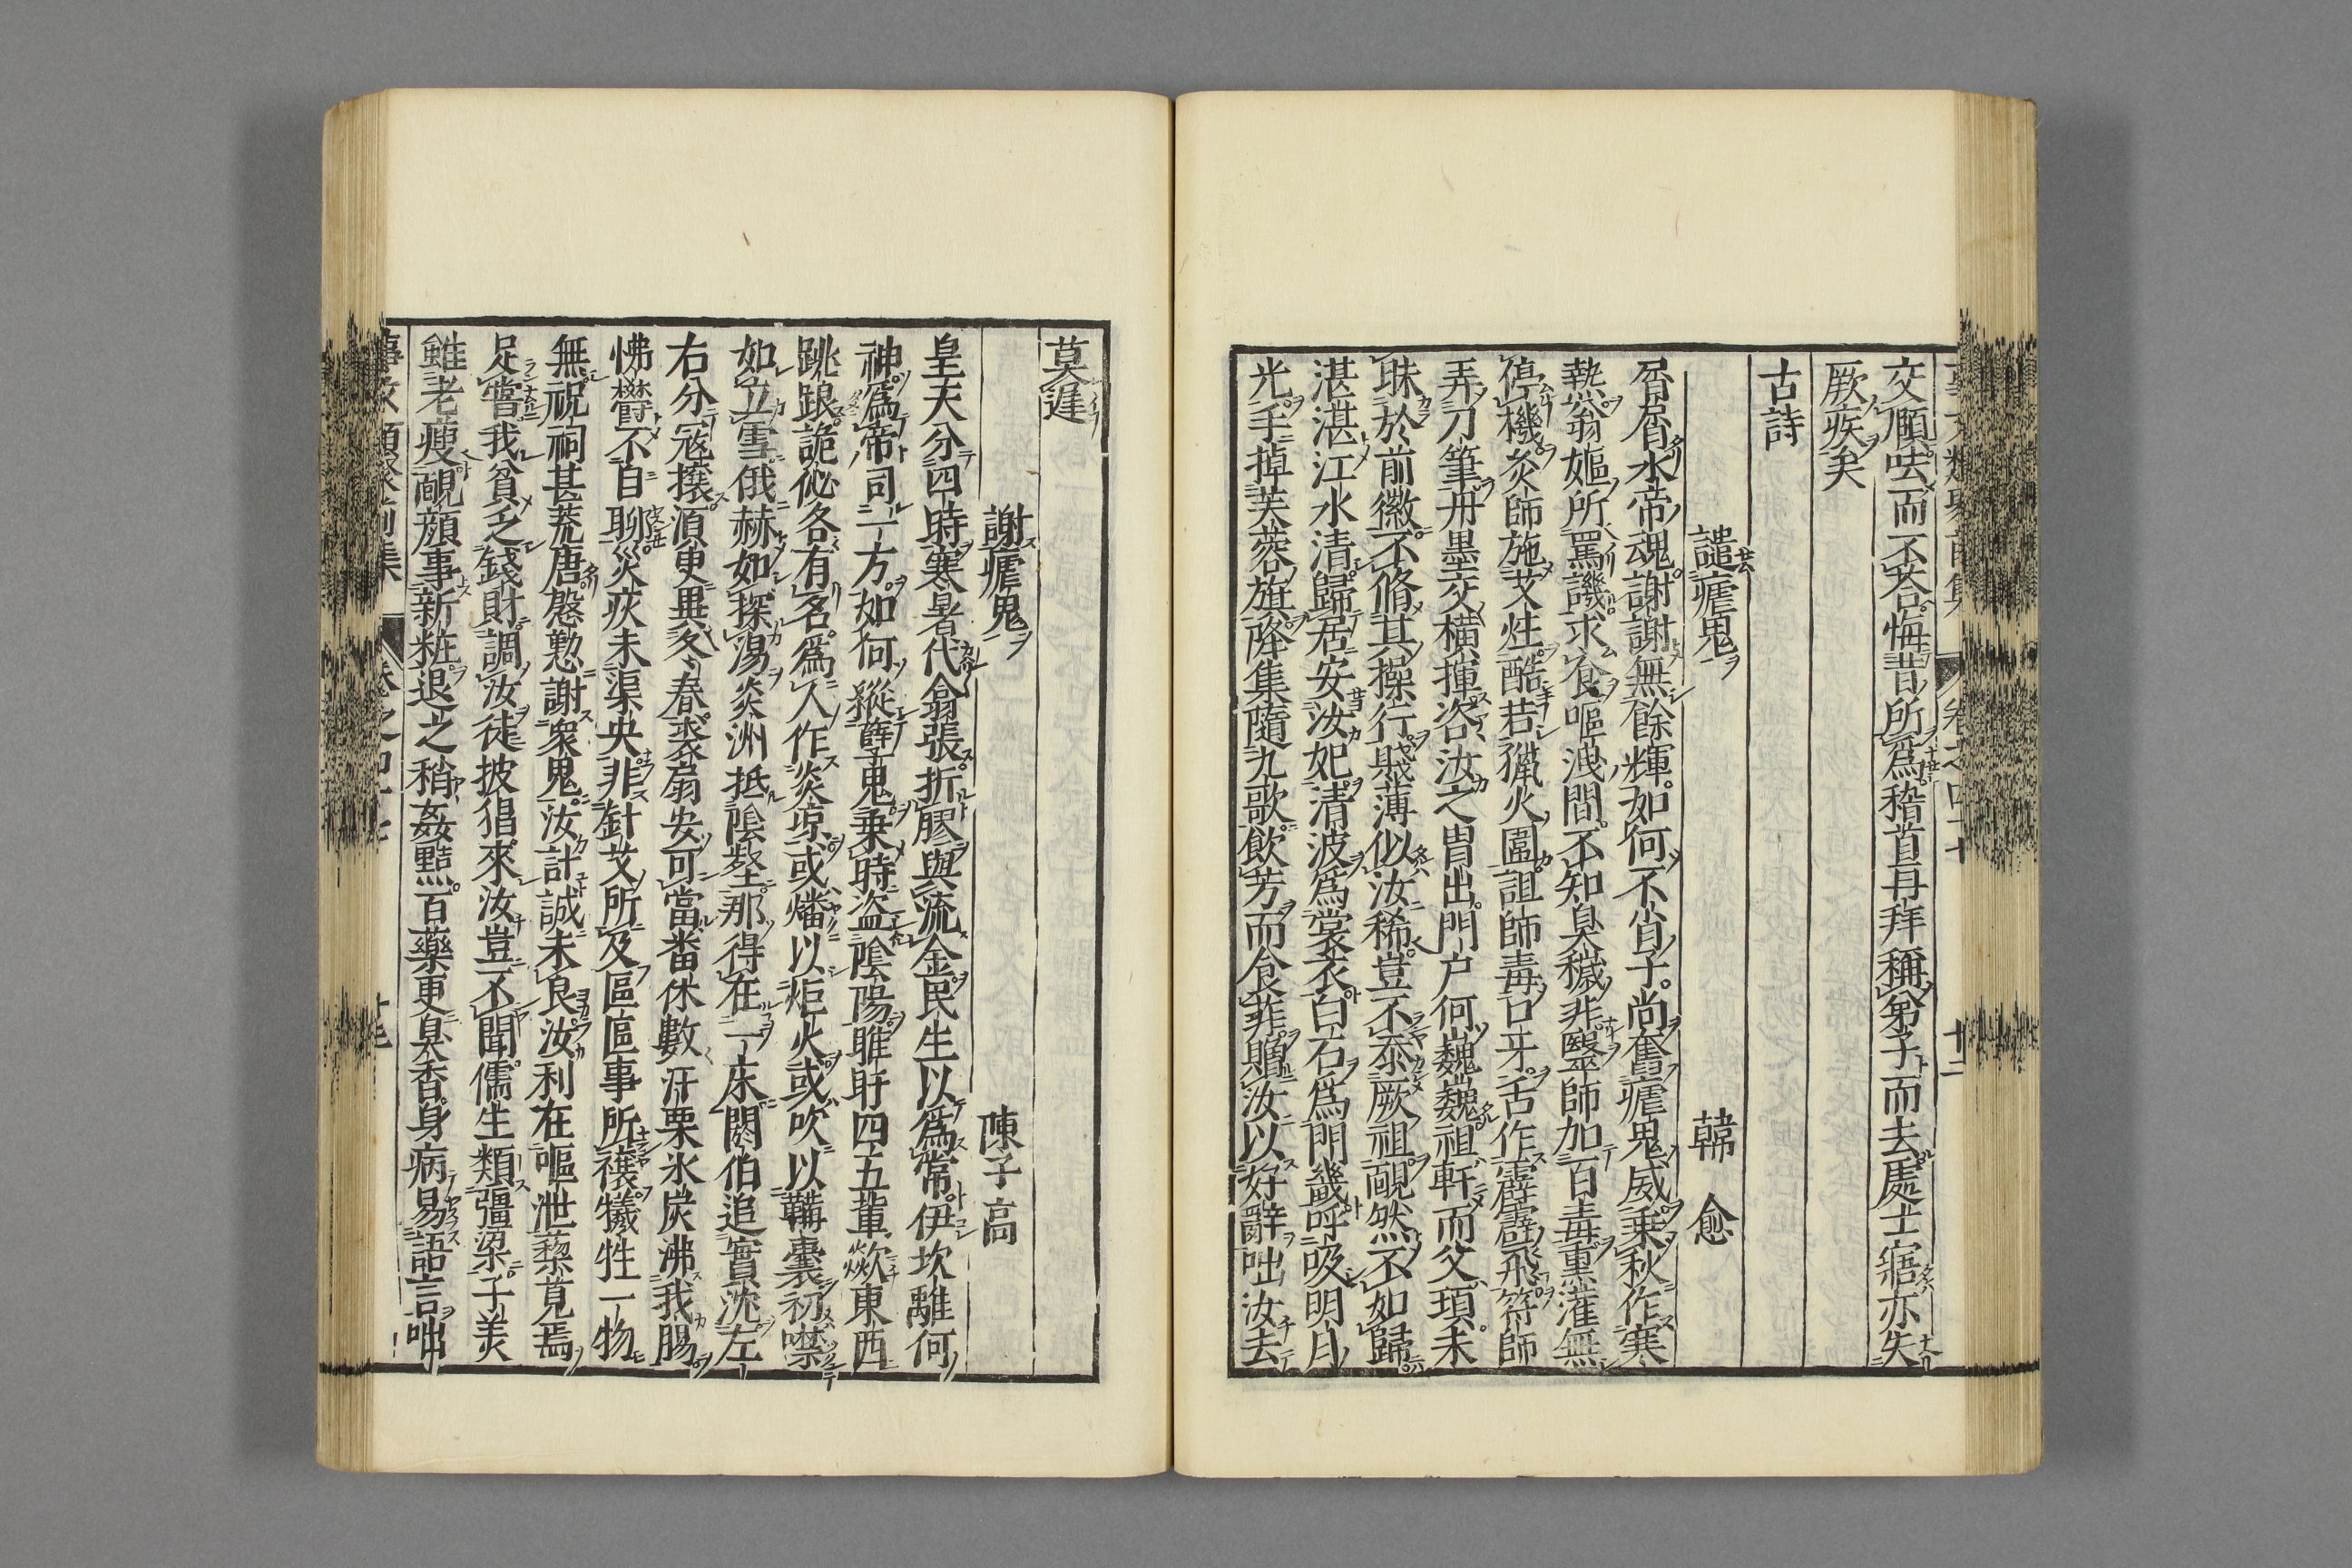 交顧呿而不荅悔昔所爲稽首再拜稱弟子而去處士寤亦失
厥疾矣
古詩
譴瘧鬼 韓愈
屑屑水帝魂謝謝無餘輝如何不肖子尚奮瘧鬼威乗秋作寒
熱翁嫗所罵譏求食嘔洩間不知臭穢非毉師加百毒熏灌無
停機灸師施艾炷酷若獵火圍詛師毒口牙舌作霹靂飛符師
弄刀筆丹墨交橫揮咨汝之胄出門户何巍巍祖軒而父頊未
昧於前徽不脩其操行賤薄似汝稀豈不忝厥祖靦然不如歸
湛湛江水清歸居安汝妃清波爲裳衣白石爲門畿呼吸明月
光手掉芙蓉旗降集隨九歌飲芳而食菲贈汝以好辭咄汝去
莫遲
謝瘧鬼 陳子高
皇天分四時寒暑代翕張折膠與流金民生以爲常伊坎離何
神爲帝司一方如何縱孽鬼乗時盗陰陽睢盱四五輩歘東西
跳踉詭佖各有名爲人作炎凉或燔以炬火或吹以鞴囊初噤
如立雪俄赫如探湯炎洲抵陰壑那得在一床閼伯追實沈左
右分冦攘湏㬰異冬春裘扇安可當畨休數汗栗氷炭沸我腸
怫欝不自聊災疾未渠央非針艾所及區區事所禳犧牲一物
無祝祠甚荒唐慇懃謝衆鬼汝計誠未良汝利在嘔泄藜莧焉
足嘗我貧乏錢財調汝徒披猖來汝豈不聞儒生類彊梁子美
雖老瘦靦顔事新粧退之稍姦黠百藥更臭香身病易語言呻